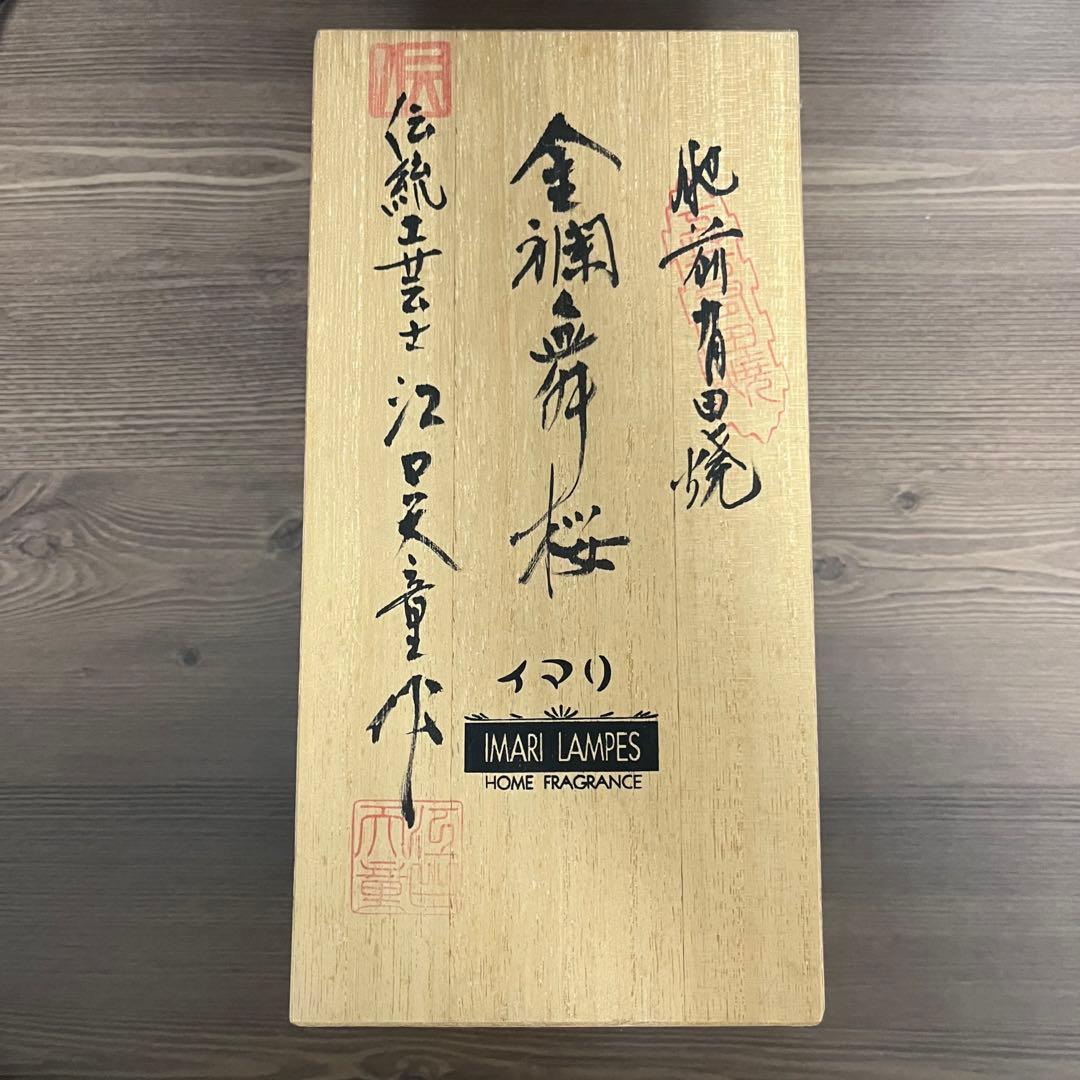 肥前有田焼
金襴舞桜
イマリ
IMARI LAMPES
HOME FRAGRANCE
伝統工芸士 江口天童作